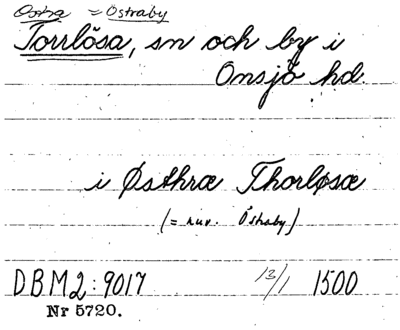 Östra = Östraby
Torrlösa, sn och by i
Onsjö hd.
i Østhræ Thorløsæ
(= nuv. Östraby)
DBM2:9017 13/1 1500
Nr 5720.